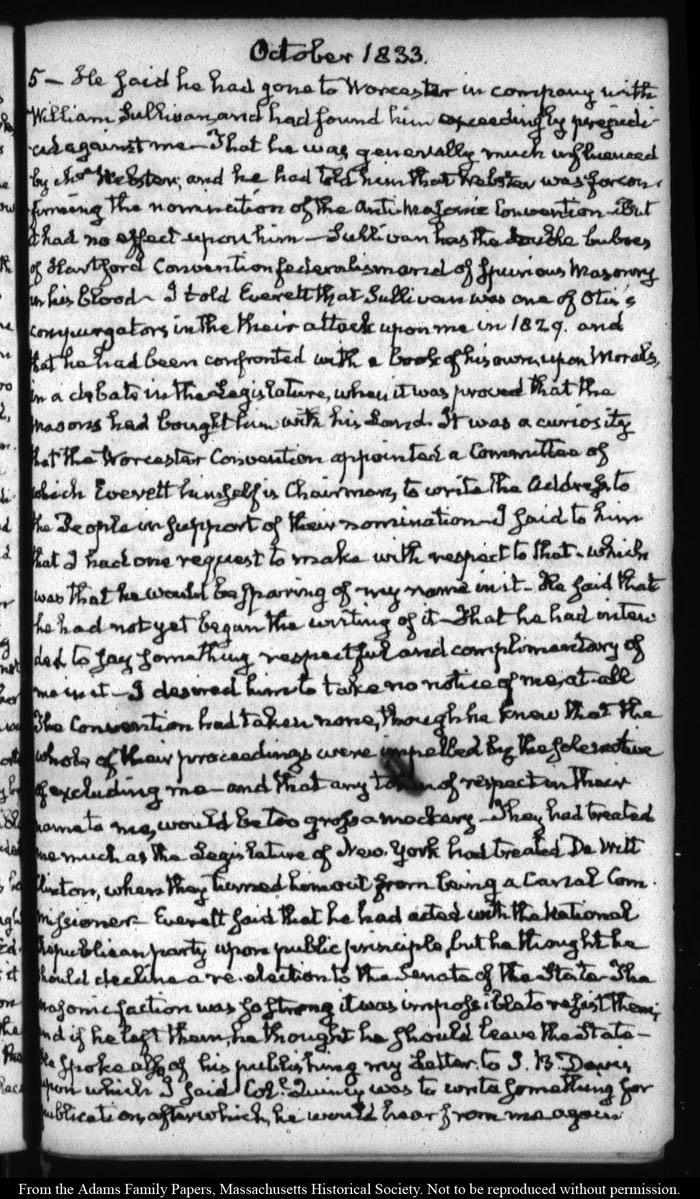 October 1833.
5 — He said he had gone to Worcester in company with
William Sullivan, and had found him exceedingly prejudi-
ced against me — That he was generally much influenced
by Webster; and he had told him that Webster was for con-
firming the nomination of the Anti-Masonic Convention — But
it had no effect upon him — Sullivan has the double buboes
of Hartford Convention federalism and of Spurious Masonry
in his blood — I told Everett that Sullivan was one of Otis's
compurgators in the their attack upon me in 1829. and
that he had been confronted with a book of his own, upon Morals,
in a debate in the Legislature, when it was proved that the
masons had bought him with his Land. It was a curiosity
that the Worcester Convention appointed a Committee of
which Everett himself is Chairman, to write the Address to
the People in support of their nomination — I said to him
that I had one request to make with respect to that — which
was that he would be sparing of my name in it — He said that
he had not yet begun the writing of it — That he had inten-
ded to say something respectful and complimentary of
me in it — I desired him to take no notice of me, at all
The Convention had taken none, though he knew that the
whole of their proceedings were impelled by the sole motive
of excluding me — and that any token of respect in their
name to me, would be too gross a mockery — They had treated
me much as the Legislature of New-York had treated De Witt
Clinton, when they turned him out from being a Canal Com-
missioner — Everett said that he had acted with the National
Republican party upon public principle, but he thought he
should decline a re-election to the Senate of the State — The
masonic faction was so strong it was impossible to resist them;
and if he left them, he thought he should leave the State —
He spoke also of his publishing my Letter to J. B. Davis
upon which I said Col. Quincy was to write something for
publication, after which, he would hear from me again
From the Adams Family Papers, Massachusetts Historical Society. Not to be reproduced without permission.